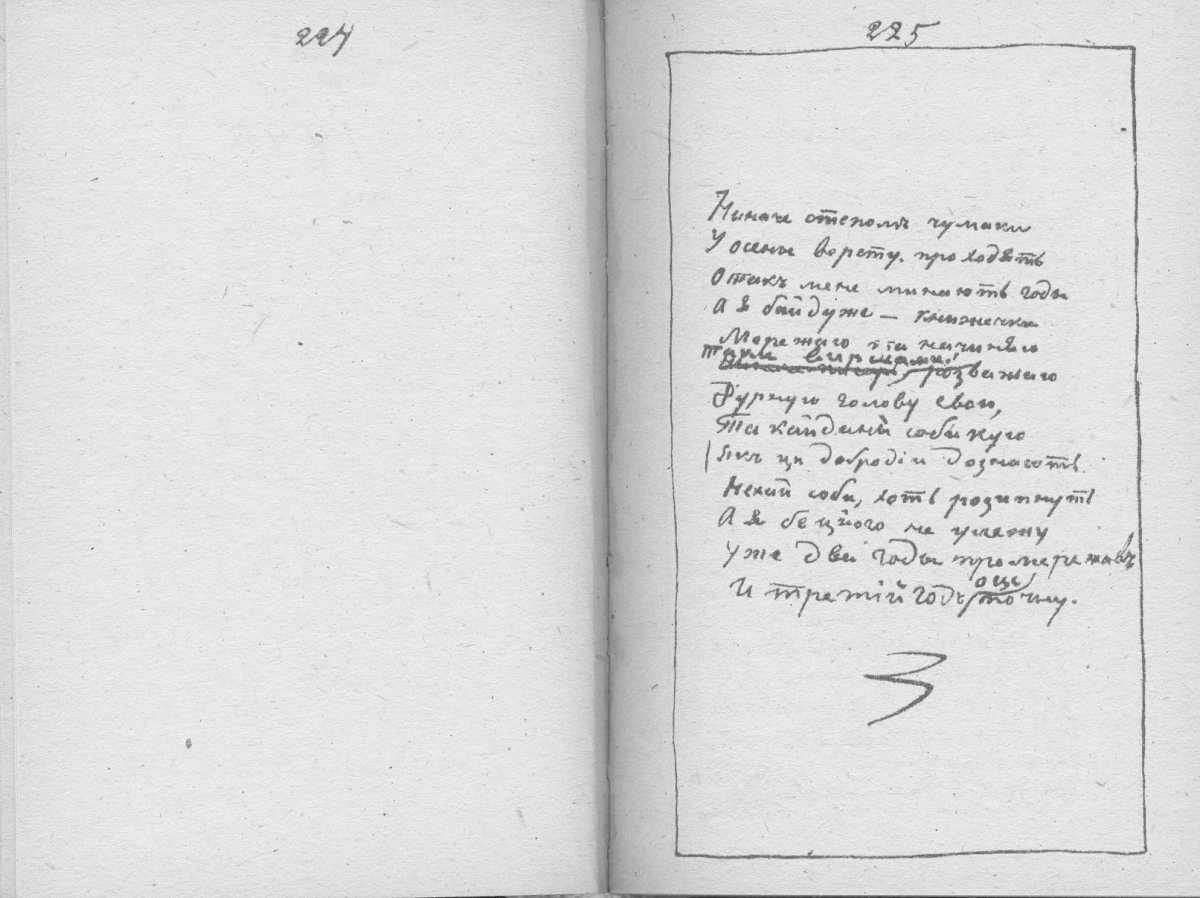 224
225
Ниначе степомъ чумаки
У осены верству проходять
Отакъ мене минають годы
А я байдуже — книжечки
Мережаю та начиняю
Таки вирщами
розважаю
Дурную голову свою,
Та кайданы соби кую
Якъ ци добродіи дознають
Нехай соби, хоть розипнуть
А я безъ цього не улежу
Уже два годы промережавъ
оце
И третій годъ почну.
3